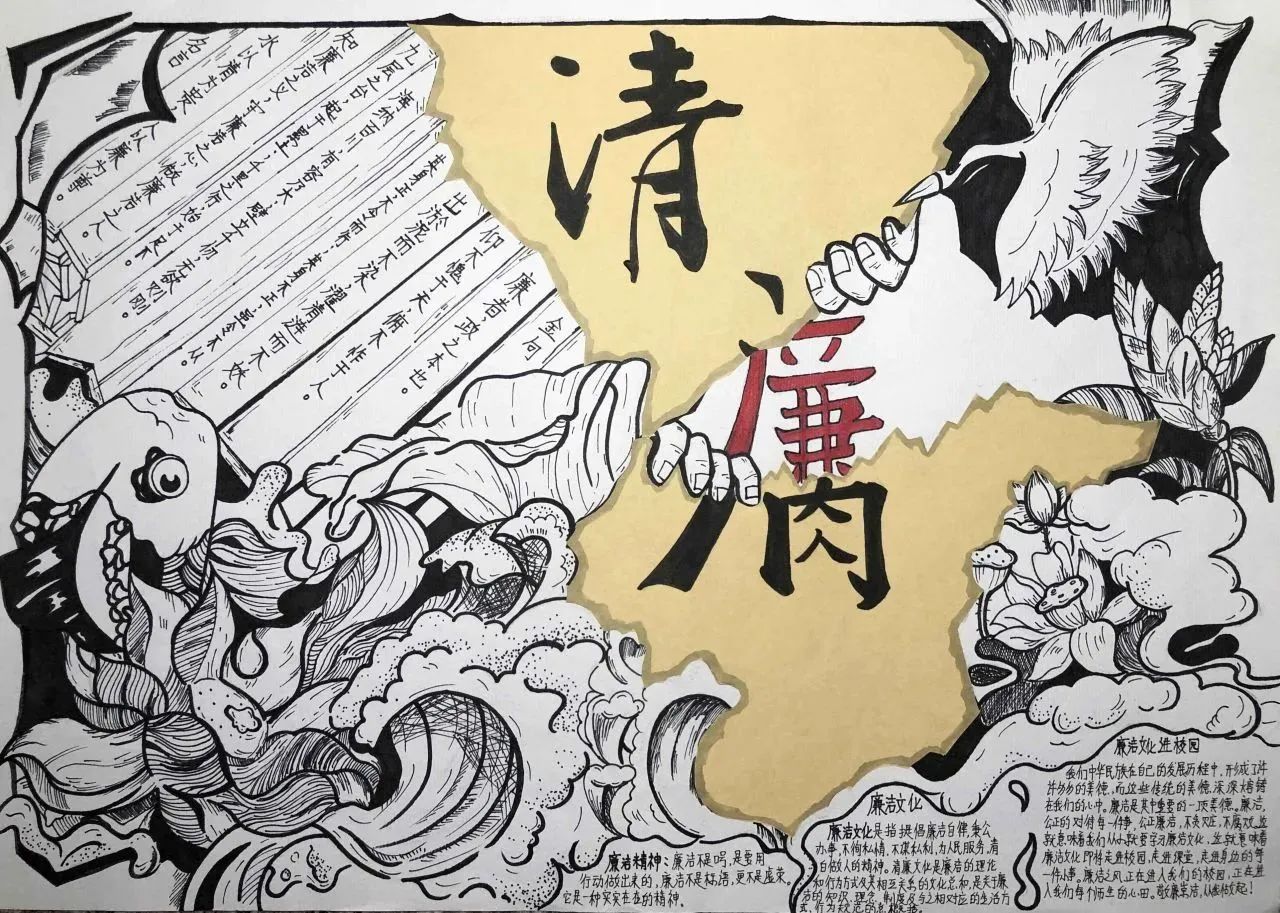 清
廉
腐
名言
水以清为贵 人以廉为尊。
知廉洁之义,守廉洁之心,做廉洁之人。
九层之台,起于累土,千里之行,始于足下。
海纳百川,有容乃大,壁立千仞,无欲则刚。
其身正,不令而行;其身不正,虽令不从。
出淤泥而不染,濯清涟而不妖。
仰不愧于天,俯不怍于人。
廉者 政之本也。
金句
廉洁精神:廉洁不是喝,是要用
行动做出来的,廉洁不是标语,更不是虚荣,
它是一种实实在在的精神。
廉洁文化
廉洁文化是指提倡廉洁自律,秉公
办事,不徇私情,不谋私利,为人民服务,清
白做人的精神。清廉文化是廉洁的理论
和行为方式及其相互关系的文化总和,是关于廉
洁的知识、理念、制度及与之相对应的生活方
式、行为规范的总概括
廉洁文化进校园
我们中华民族在自己的发展历程中,形成了许
许多多的美德,而这些传统的美德,深深熔铸
在我们的心中。廉洁是其中重要的一项美德。廉洁,
公正的对待每一件事,公正廉洁,不贪双正,不腐双
就意味着我们从小就要学习廉洁文化,就意味着
廉洁文化即将走进校园,走进课堂,走进身边的每
一件小事。廉洁之风正在进入我们的校园,正在进
入我们每个师生的心田。敬廉崇洁,从我做起!